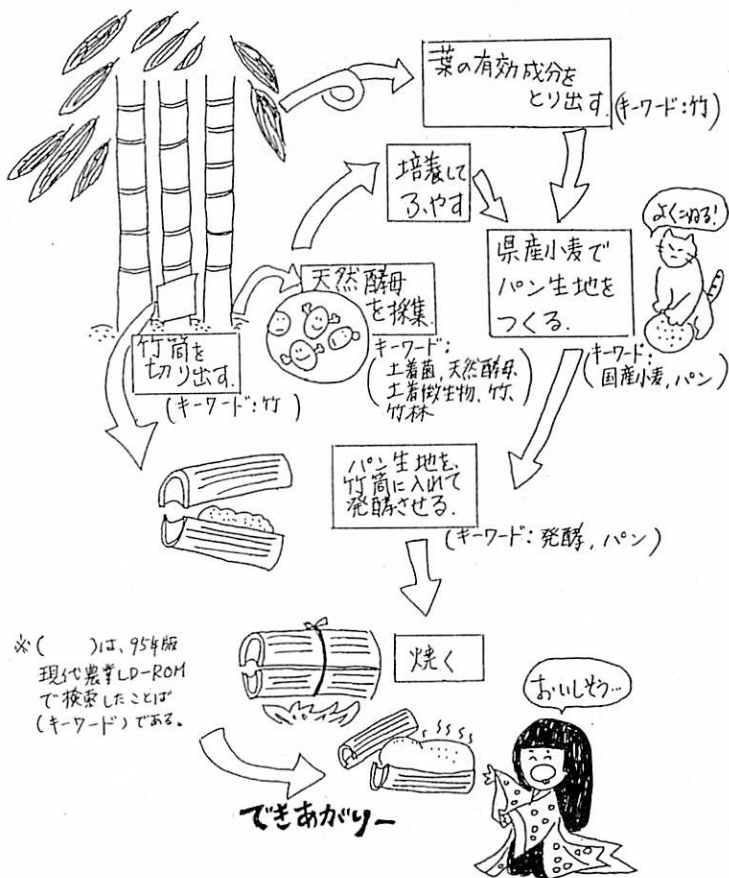 葉の有効成分を
とり出す.
(キーワード:竹)
培養して
ふやす
よくこねる!
県産小麦で
パン生地を
つくる.
(キーワード:
国産小麦,パン)
天然酵母
を採集.
キーワード:
(土着菌,天然酵母,
土着微生物、竹、
竹林)
竹筒を
切り出す.
(キーワード:竹)
パン生地を、
竹筒に入れて
発酵させる.
(キーワード:発酵,パン)
焼く
※(　　)は、95年版
現代農業CD-ROM
で検索したことば
(キーワード)である。
おいしそう…
できあがりー